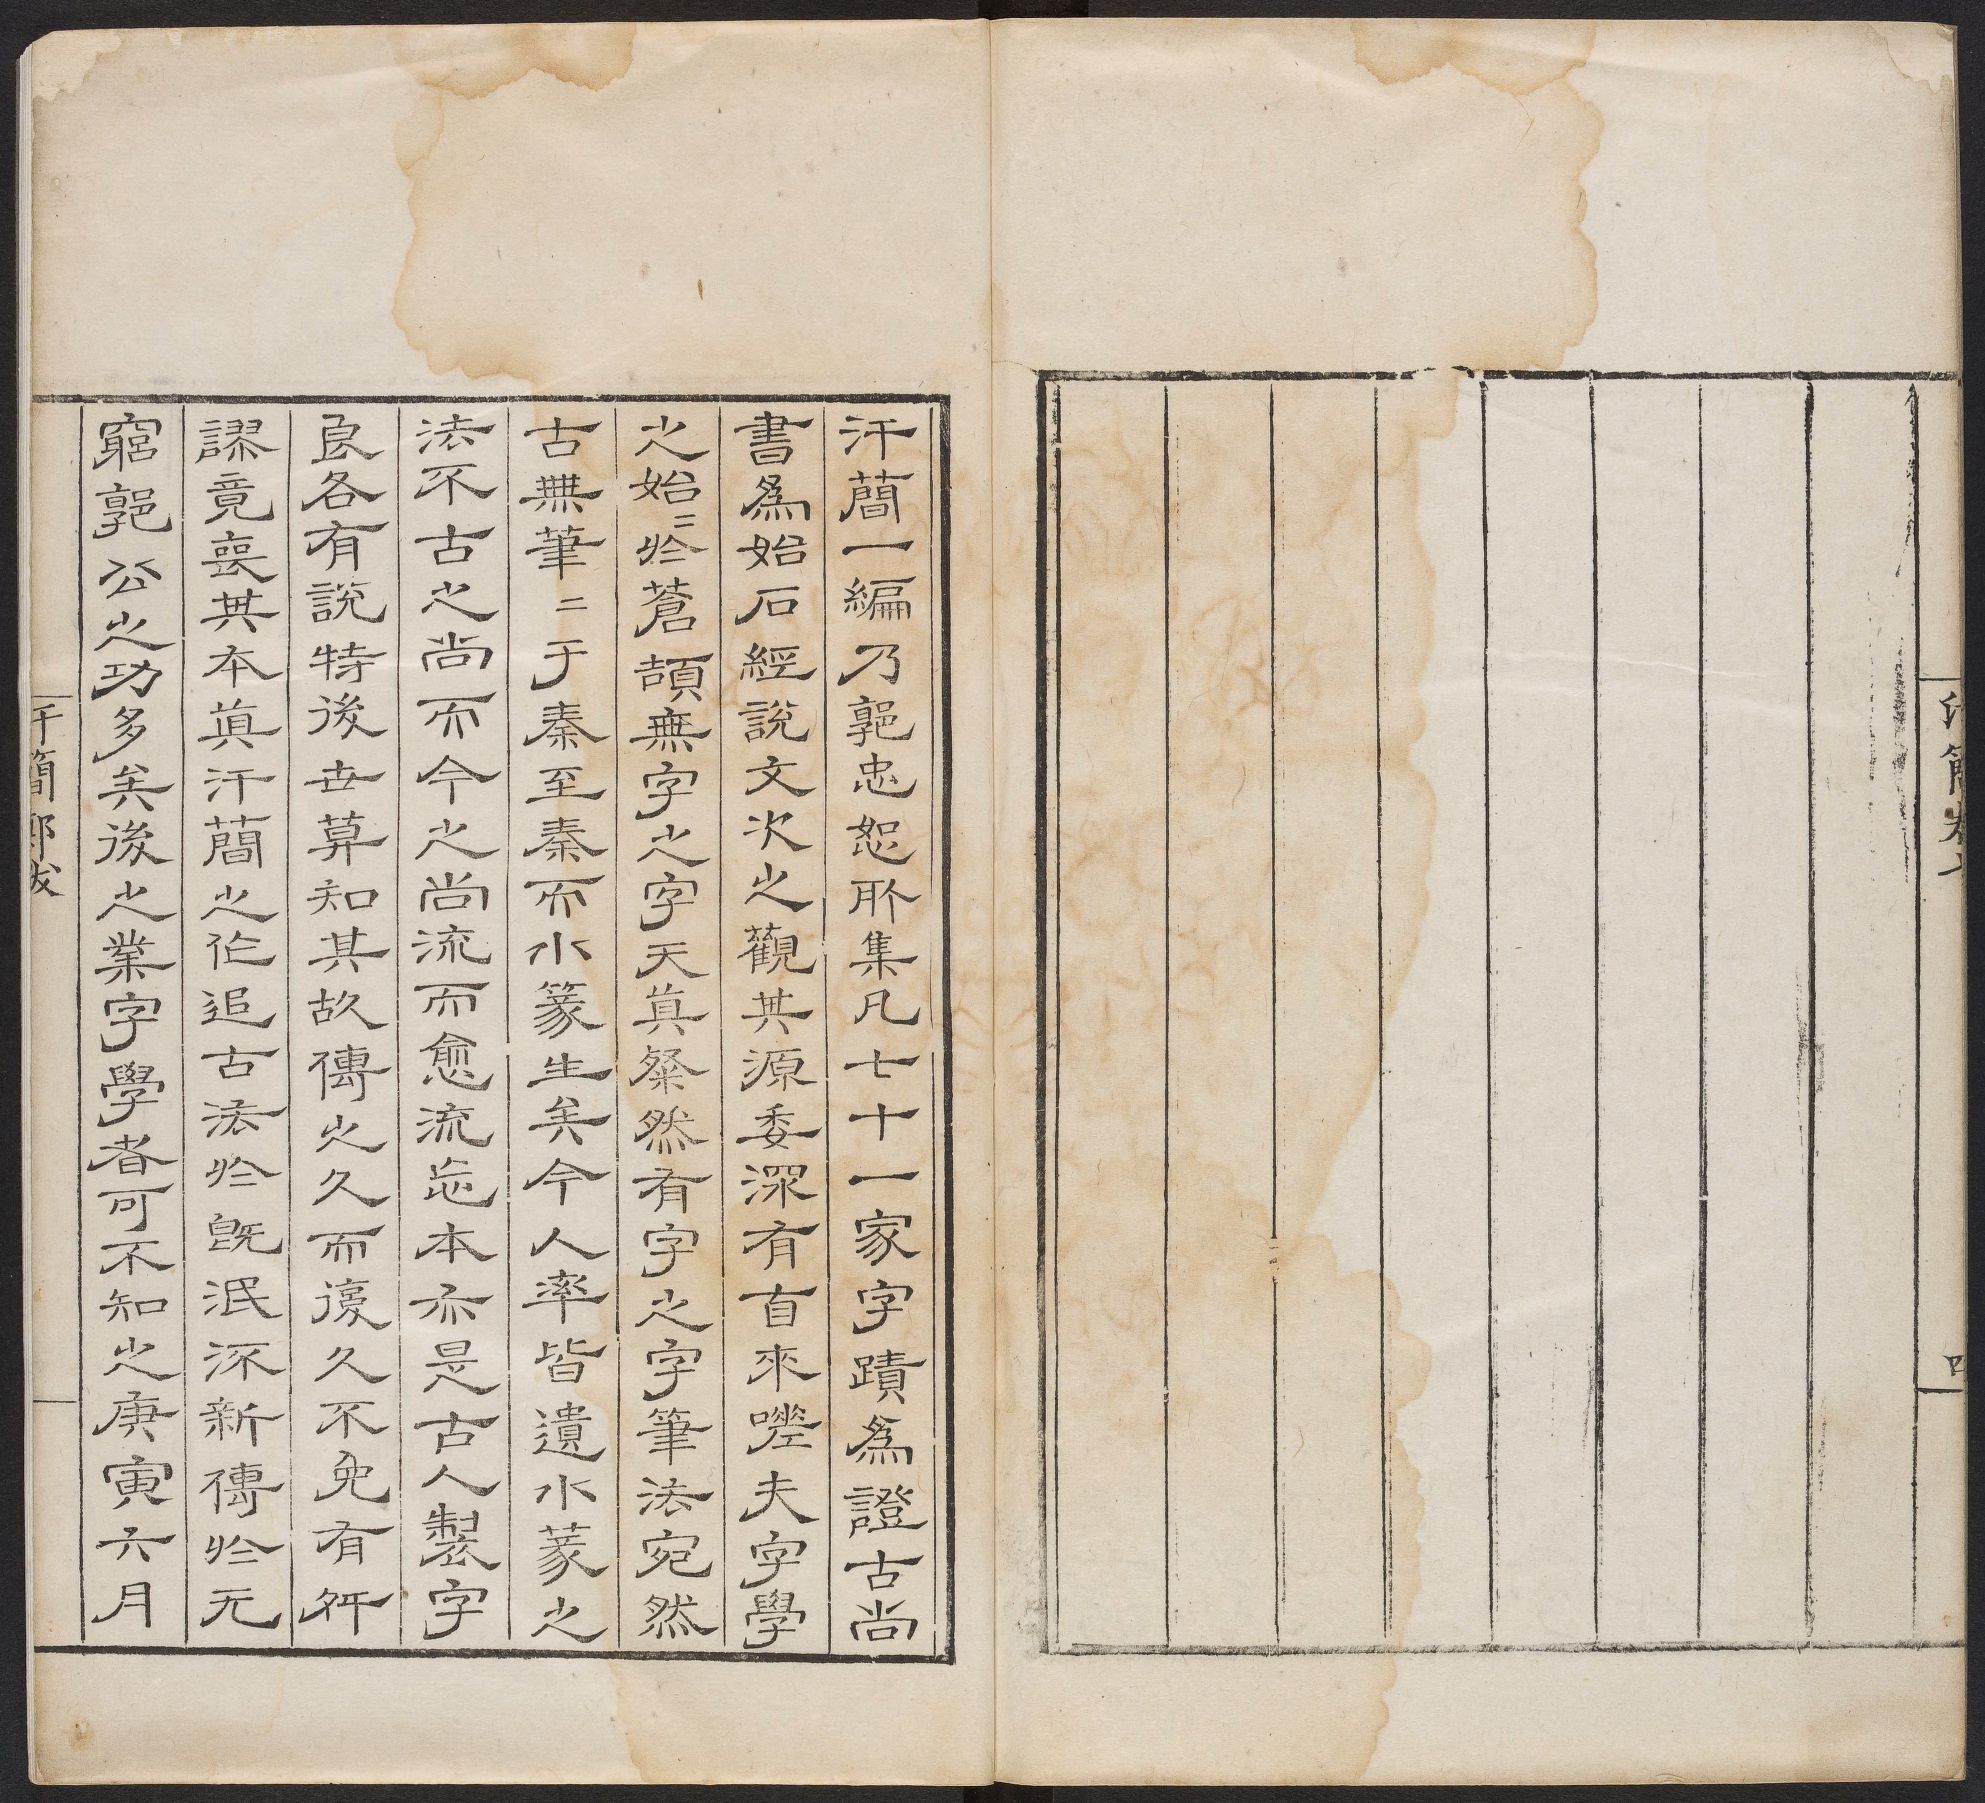 汗簡卷七
四
汗簡一編乃郭忠恕所集凡七十一家字蹟為證古尚
書為始石經說文次之觀其源委深有自來嗟夫字學
之始二於蒼頡無字之字天真粲然有字之字筆法宛然
古無筆二于秦至秦而小篆生矣今人率皆遺小篆之
法不古之尚而今之尚流而愈流忘本亦是古人製字
良各有說特後世莫知其故傳之久而復久不免有舛
謬竟喪其本真汗簡之作追古法於既泯添新傳於无
窮郭公之功多矣後之業字學者可不知之庚寅六月
汗簡鄭跋
一